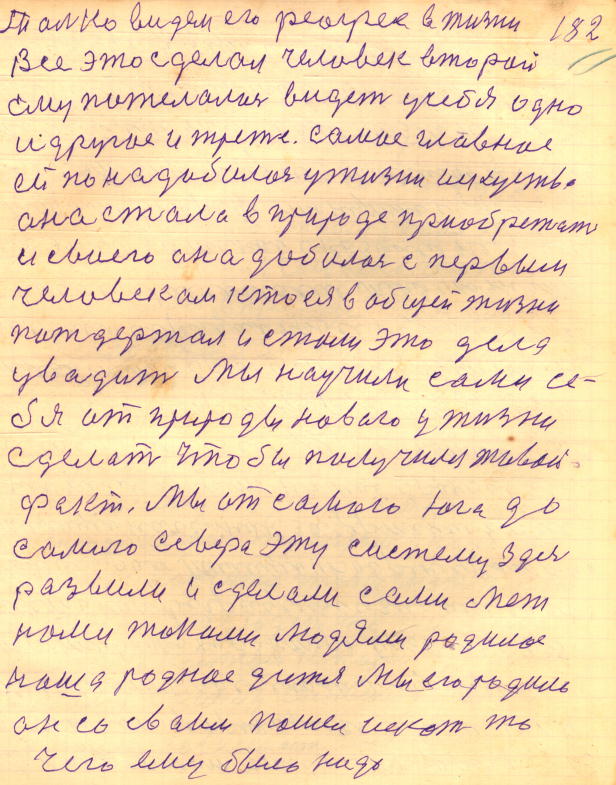 Толко видем его реогрек в жизни 182
Все это сделал человек второй
ему пожелалося видет у себя одно
и другое и треже. самое главное
ей понадобилося у жизни искуство
она стала в природе приобретат
и своего она добилося с первым
человеком кто ея в общей жизни
пождержал и стали это дела
увадит Мы научили сами се-
бя от природы новаго у жизни
сделат чтобы получился живой
факт. Мы от самого юга до
самого севера эту систему здес
развили и сделали сами меж
нами такими людями родилос
наша родное дитя Мы его родили
он со своим пошел искат то
чего ему было надо